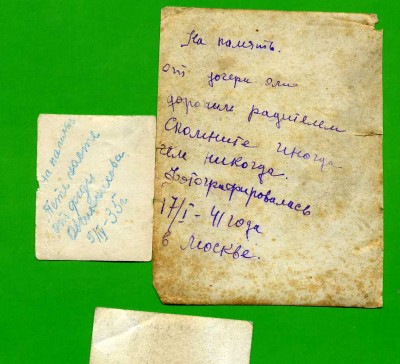 На память
дяди
9/IV 35 г
На память.
от дочери Оли
дорогим родителем
Вспомните иногда
чем никогда.
Фотографировалась
17/I - 41 года
в Москве.